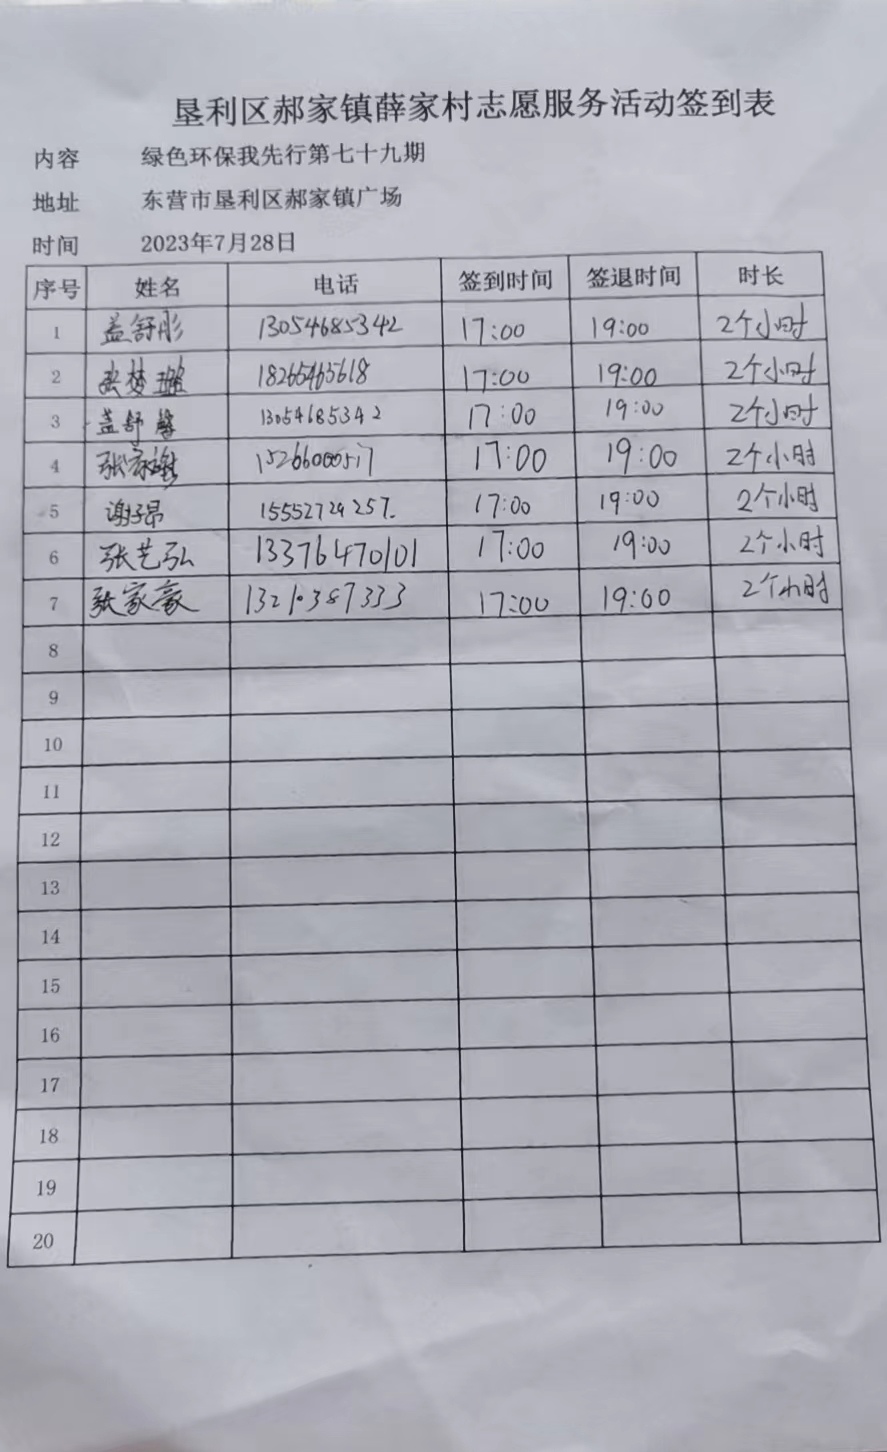 垦利区郝家镇薛家村志愿服务活动签到表
内容 绿色环保我先行第七十九期
地址 东营市垦利区郝家镇广场
时间 2023年7月28日
序号 姓名 电话 签到时间 签退时间 时长
1 盖舒彤 13054685342 17:00 19:00 2个小时
2 张梦璐 18265465618 17:00 19:00 2个小时
3 盖舒馨 13054685342 17:00 19:00 2个小时
4 张家 17:00 19:00 2个小时
5 谢子昂 15552724257. 17:00 19:00 2个小时
6 张艺弘 13376470101 17:00 19:00 2个小时
7 张家豪 13210387333 17:00 19:00 2个小时
8
9
10
11
12
13
14
15
16
17
18
19
20